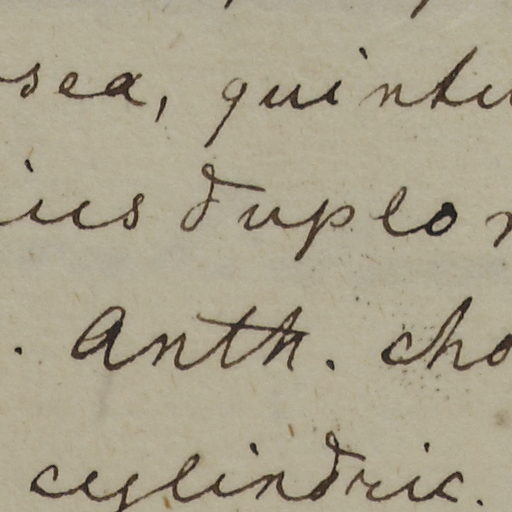 sea, quintu
ius duplo
. Anth. cho
cylindric.